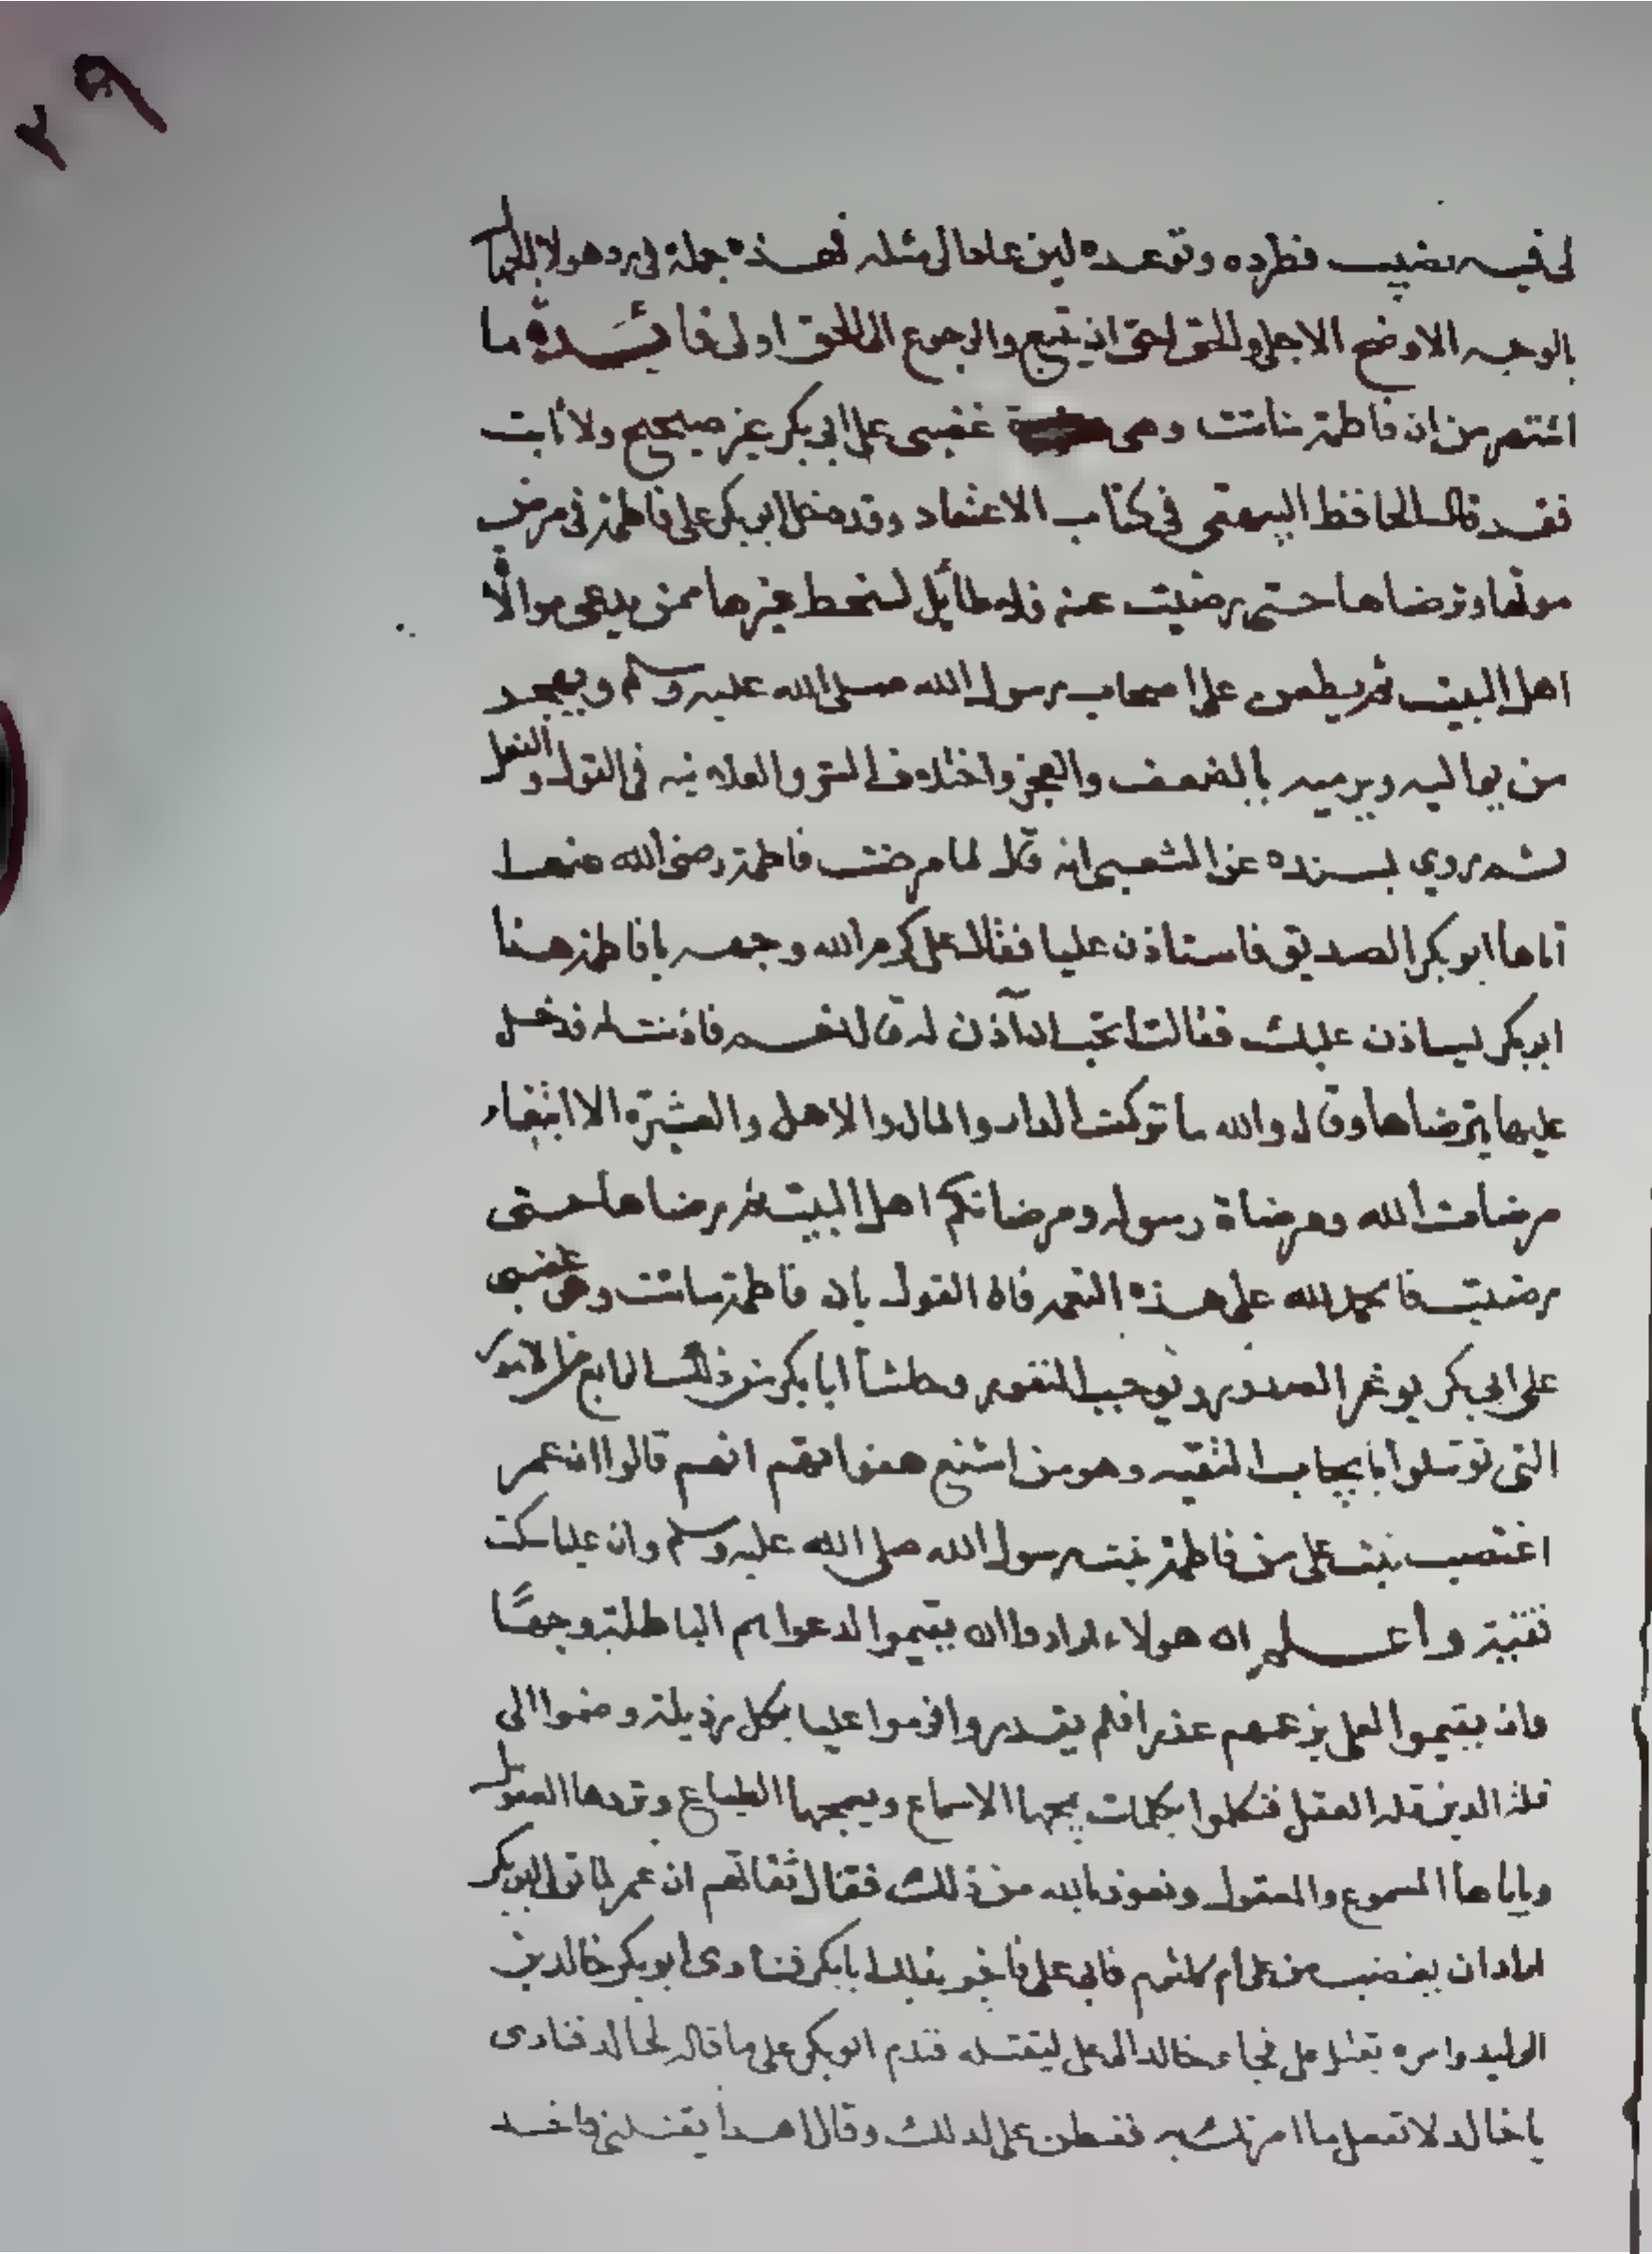 ٢٩
لى فيه نصيب فطرده وتوعده لين عاد الى مثله فهذه جملة فى رد هولاء
بالوجه الاوضح الاجل والحق احق ان يتبع والرجوع الى الحق اولى فائدة ما
اشتهر من ان فاطمة ماتت وهى غضبى على ابى بكر غير صحيح ولا ثابت
فقد قال الحافظ البيهقى فى كتاب الاعتقاد وقد دخل ابو بكر على فاطمة فى مرض
موتها وترضاها حتى رضيت عنه فلا طائل لسخط غيرها ممن يدعى موالاة
اهل البيت ثم يطعن على اصحاب رسول الله صلى الله عليه وسلم ويهجد
من يواليه ويرميه بالضعف والعجز واختلاف السر والعلانيه فى القول والفعل
ثم روى بسنده عن الشعبى انه قال لما مرضت فاطمة رضى الله عنها
اتاها ابو بكر الصديق فاستاذن عليا فقال على كرم الله وجهه يا فاطمة هذا
ابو بكر يساذن عليك فقالت اتحب ان آذن له قال نعم فاذنت له فدخل
عليها يترضاها وقال والله ما تركت الدار والمال والاهل والعشيرة الا ابتغاء
مرضات الله ومرضاة رسوله ومرضاتكم اهل البيت ثم ترضاها حتى
رضيت فالحمد لله على هذه النعم فان القول بان فاطمة ماتت وهى غضبى
على ابى بكر يوغر الصدور ويوجب النفور وحاشا ابا بكر من ذلك الرابع من الامور
التى توسلوا بها بايجاب التقيه وهو من اشنع هفواتهم انهم قالوا ان عمر
اغتصب بنت على من فاطمة بنت رسول الله صلى الله عليه وسلم وان عليا سكت
تقية واعلم ان هولاء ارادوا ان يقيموا لدعواهم الباطلة وجها
وان يقيموا لعلى بزعمهم عذرا فلم يقدروا فرموا عليا بكل رذيلة وضموا الى
قلة الدين قلة العقل فتكلموا بكلمات يمجها الاسماع ويمجها الطباع وتردها العقول
وياباها المسموع والمعقول ونعوذ بالله من ذلك فقال ثقاتهم ان عمر لما تولى ابو بكر
اراد ان يغضب من على ام كلثوم فابى على فاخبر بذلك ابا بكر فنادى ابو بكر خالد بن
الوليد وامره بقتل على فجاء خالد الى على ليقتله فندم ابو بكر على ما قال لخالد فنادى
يا خالد لا تفعل ما امرتك به ففطن على لذلك وقال اهذا يقتلنى فاخذ